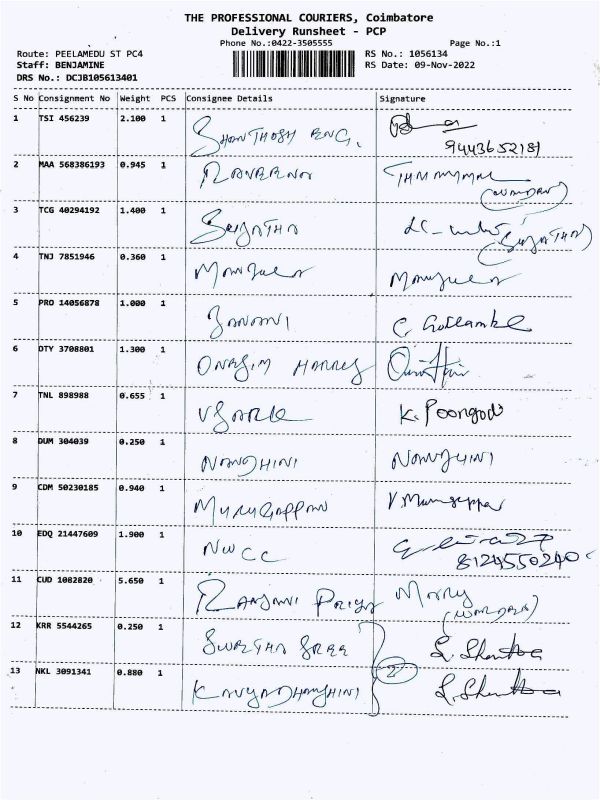 THE PROFESSIONAL COURIERS, Coimbatore
Delivery Runsheet - PCP
Phone No.:0422-3505555 Page No.:1
Route: PEELAMEDU ST PC4 RS No.: 1056134
Staff: BENJAMINE RS Date: 09-Nov-2022
DRS No.: DCJB105613401
S No Consignment No Weight PCS Consignee Details Signature
1 TSI 456239 2.100 1 SHANTHOSH ENG.
9443652181
2 MAA 568386193 0.945 1
3 TCG 40294192 1.400 1 SUJATHA
(SUJATHA)
4 TNJ 7851946 0.360 1
5 PRO 14056878 1.000 1 JANANI
6 DTY 3708801 1.300 1 ONASIM HARRIS
7 TNL 898988 0.655 1 K. Poongodi
8 DUM 304039 0.250 1 NANDHINI NANDHINI
9 CDM 50230185 0.940 1 MURUGAPPAN V. Murugappan
10 EDQ 21447609 1.900 1 NWCC
8124550240
11 CUD 1082820 5.650 1 RANJANI PRIYA Mary
(WARDEN)
12 KRR 5544265 0.250 1 SWETHA SREE
2
13 NKL 3091341 0.880 1 KAVYADHARSHINI